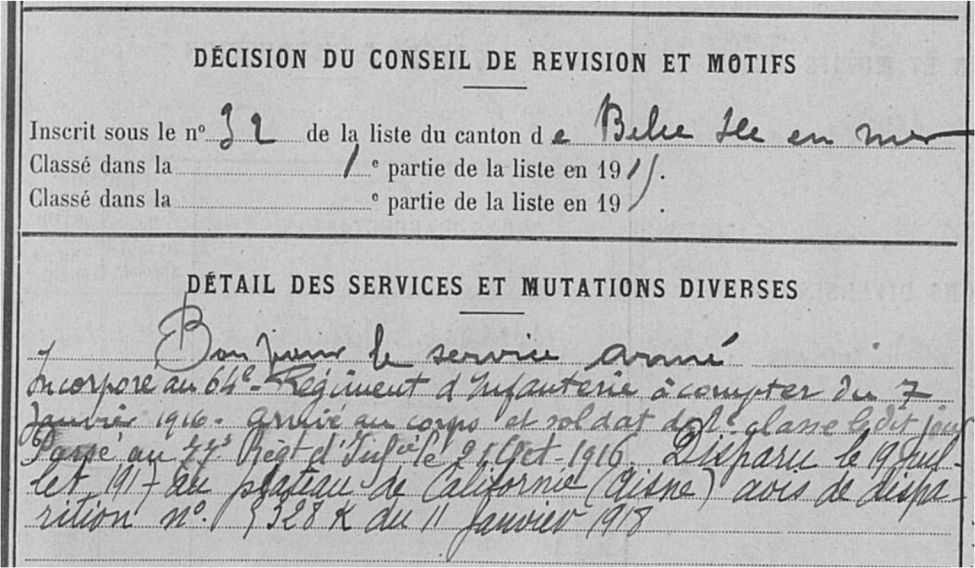 DÉCISION DU CONSEIL DE REVISION ET MOTIFS
Inscrit sous le nº 32 de la liste du canton de Belle Ile en mer
Classé dans la 1e partie de la liste en 1915.
Classé dans la e partie de la liste en 19 .
DÉTAIL DES SERVICES ET MUTATIONS DIVERSES
Bon pour le service armé
Incorporé au 64e Régiment d'Infanterie à compter du 7
Janvier 1916. arrivé au corps et soldat de 2e classe le dit jour
Passé au 77e Régt d'Infie le 21 Oct 1916. Disparu le 19 Juil-
let 1917 au plateau de Californie (Aisne) avis de dispa-
rition nº. 328 K du 11 Janvier 1918